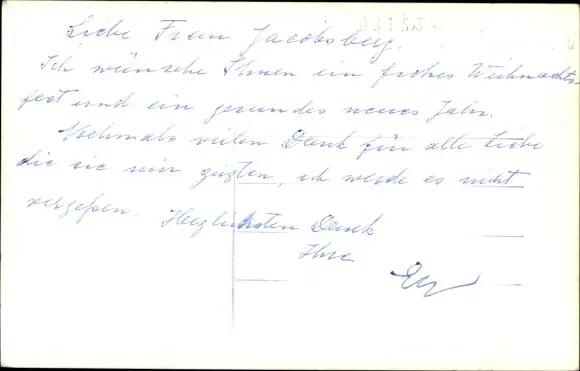 031534
Liebe Frau Jacobsberg.
Ich wünsche Ihnen ein frohes Weihnachts-
fest und ein gesundes neues Jahr.
Nochmals vielen Dank für alle Liebe
die sie mir zeigten, ich werde es nicht
vergeßen. Herzlichsten Dank
Ihre